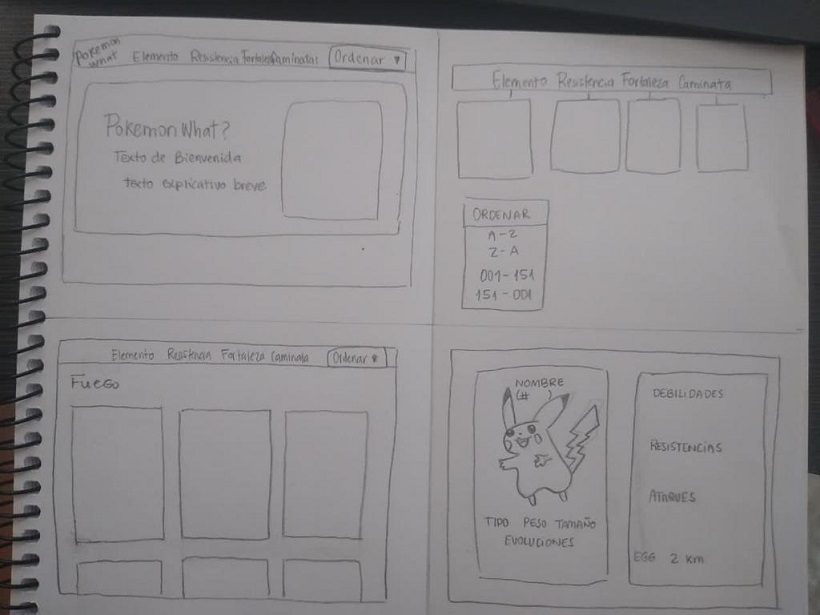 Pokemon
what Elemento Resistencia Fortaleza Caminatas Ordenar ▼
Pokemon What?
Texto de Bienvenida
texto explicativo breve.
Elemento Resistencia Fortaleza Caminata
ORDENAR
A-Z
Z-A
001-151
151-001
Elemento Resistencia Fortaleza Caminata Ordenar ▼
Fuego
NOMBRE
(# )
TIPO PESO TAMAÑO
EVOLUCIONES
DEBILIDADES
RESISTENCIAS
ATAQUES
EGG 2 Km